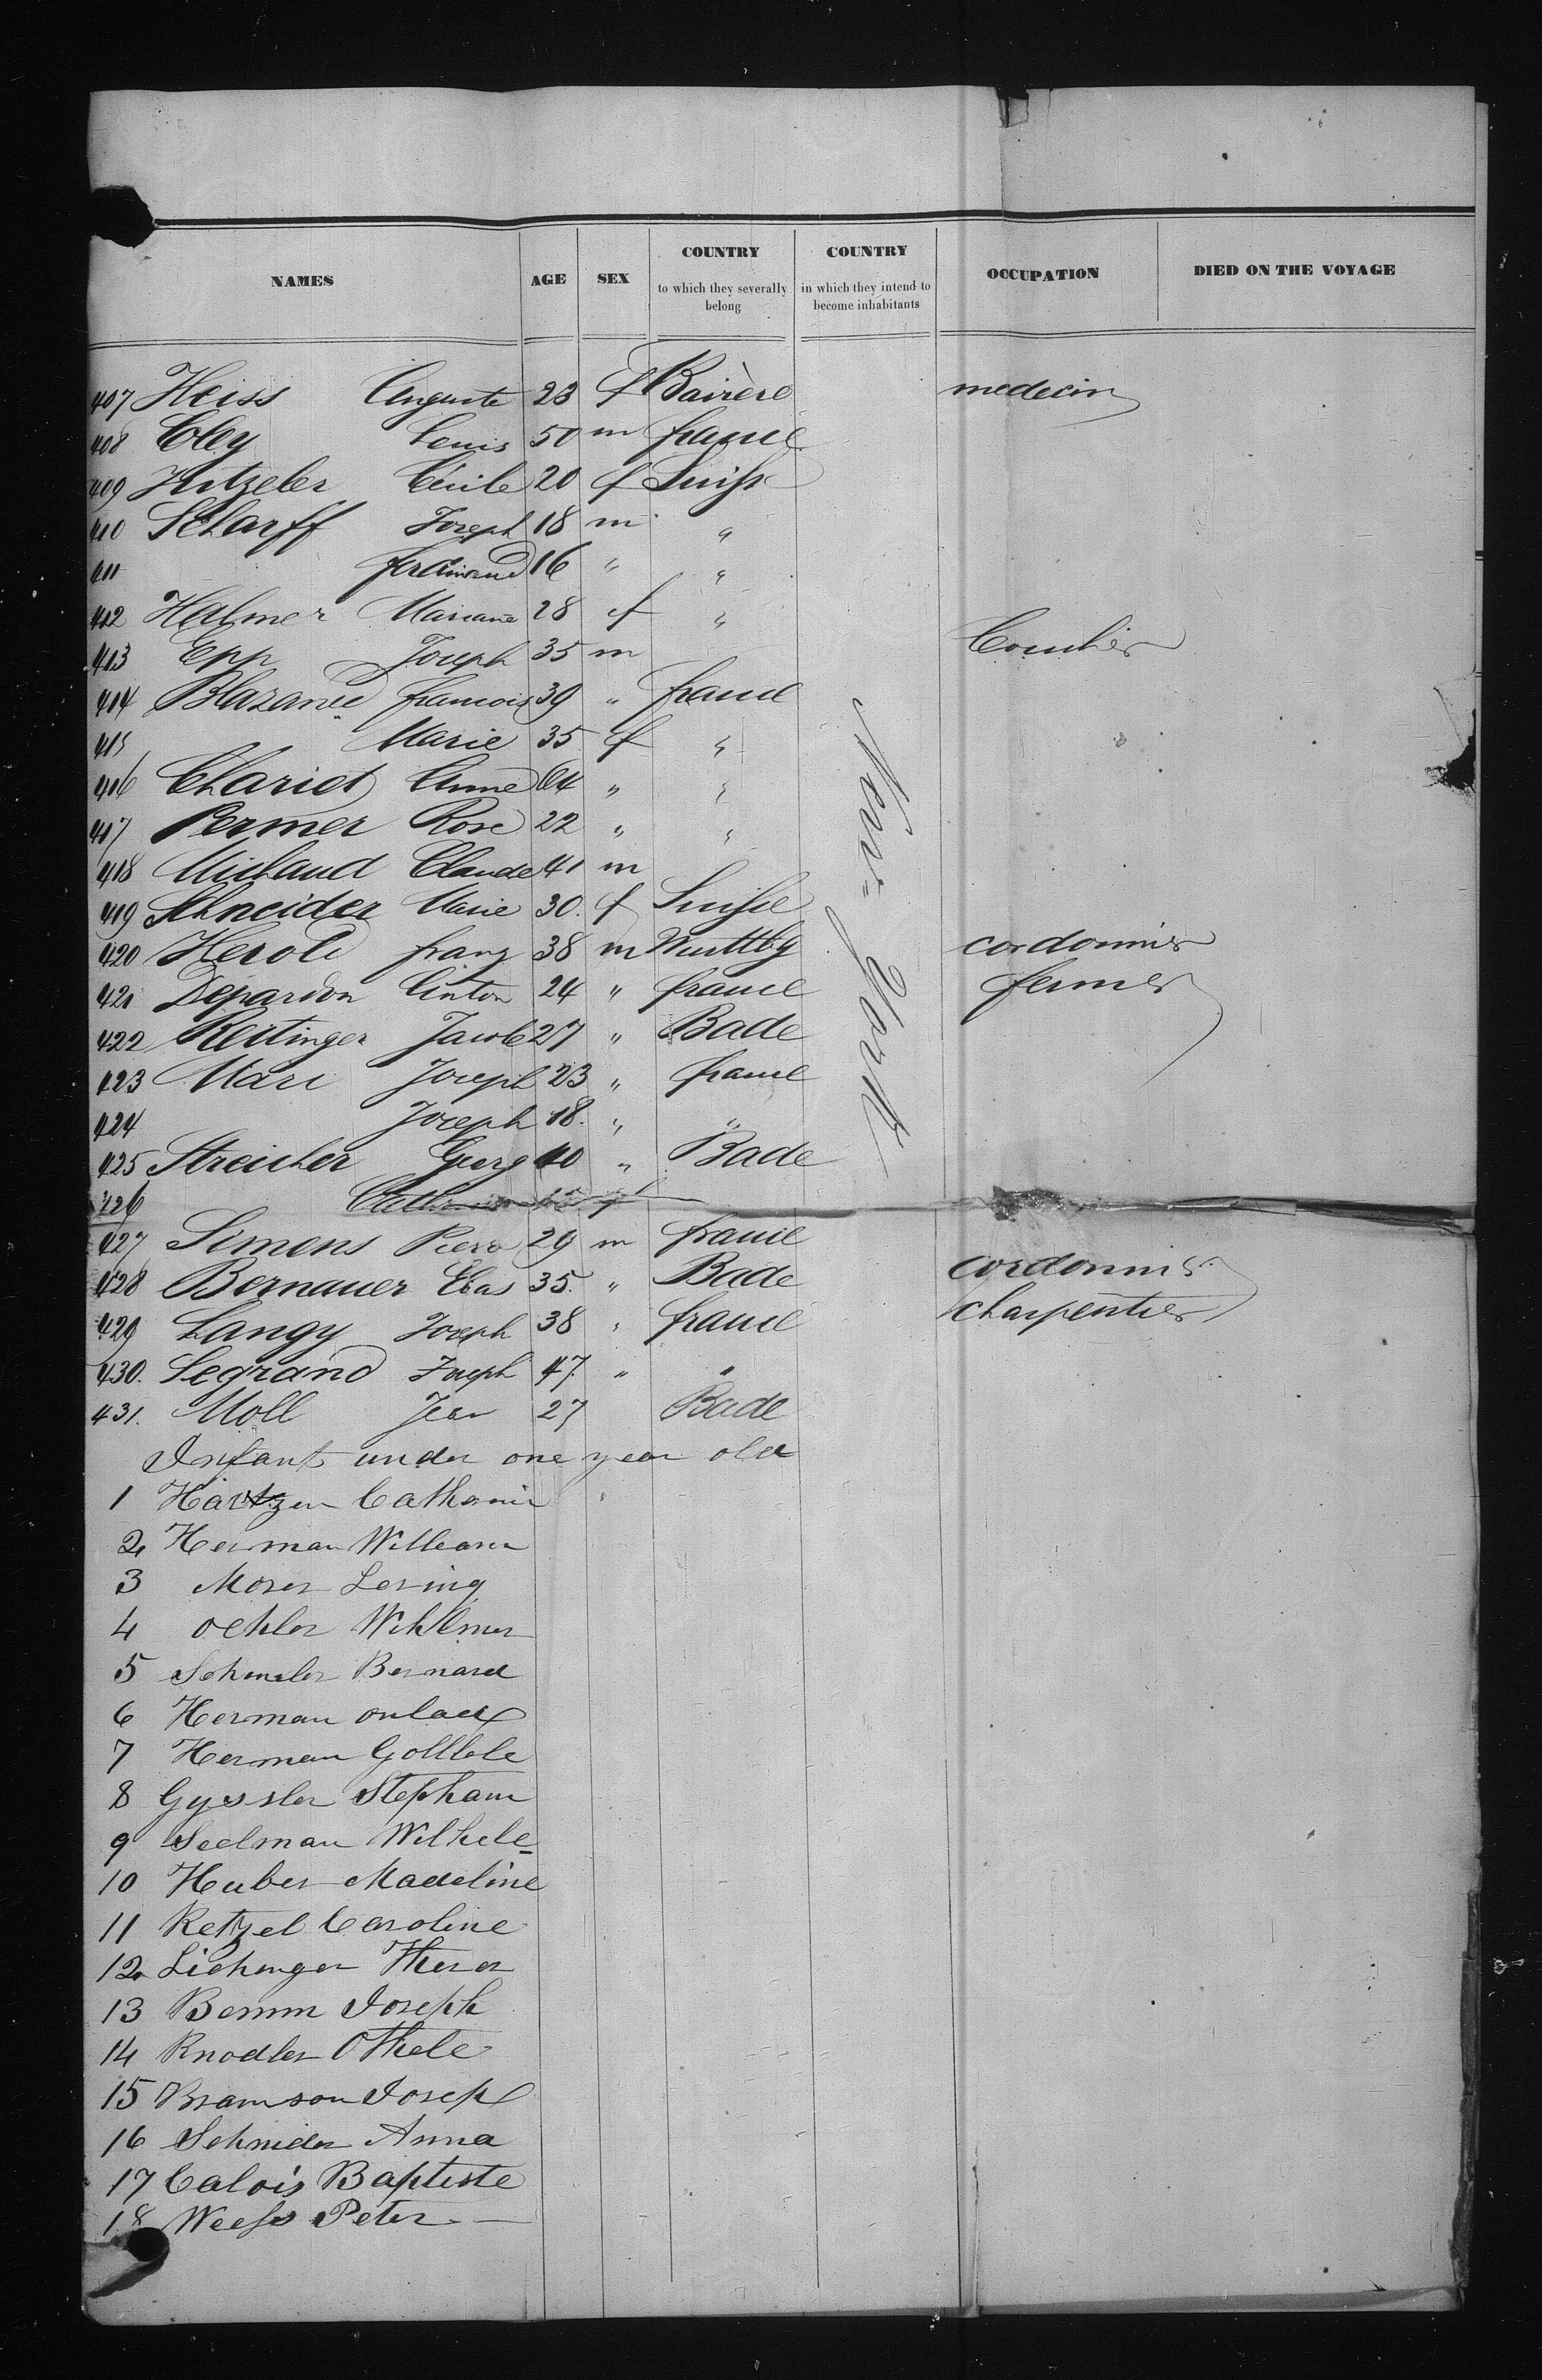 NAMES AGE SEX COUNTRY to which they severally belong COUNTRY in which they intend to become inhabitants OCCUPATION DIED ON THE VOYAGE
407 Heiss Auguste 23 f Bavière medecin
408 Cley Louis 50 m france
409 Hitzeler Cécile 20 f Suisse
410 Scharff Joseph 18 m "
411 ferdinand 16 " "
412 Halmer Mariane 28 f "
413 Epp Joseph 35 m
414 francois 39 " france
415 Marie 35 f "
416 Chariet Anne 64 " "
417 Permer Rose 22 " "
418 Michaud Claude 41 m
419 Schneider Marie 30. f Suisse
420 Herold franz 38 m Wurttbg cordonnier
421 Depardon Anton 24 " france fermier
422 Reitinger Jacob 27 " Bade
423 Mari Joseph 23 " france
424 Joseph 18. " "
425 Streicher Georg 40 " Bade
426 f
427 Simons Pierre 29 m france
428 Bernauer 35. " Bade cordonnier
429 Langy Joseph 38 " france charpentier
430. Legrand Joseph 47. " "
431. Moll Jean 27 Bade
New-York
Infant under one year old
1 Catharin
2 Herman William
3 Moser
4 oehler
5 Bernard
6 Herman
7 Herman
8 Gyssler Stephan
9 Seelman Wilhele
10 Huber Madeline
11 Retzel Caroline
12
13 Bemm Joseph
14 Knodler Othele
15 Bramson Josep
16 Schnider Anna
17 Calois Baptiste
18 Weess Peter